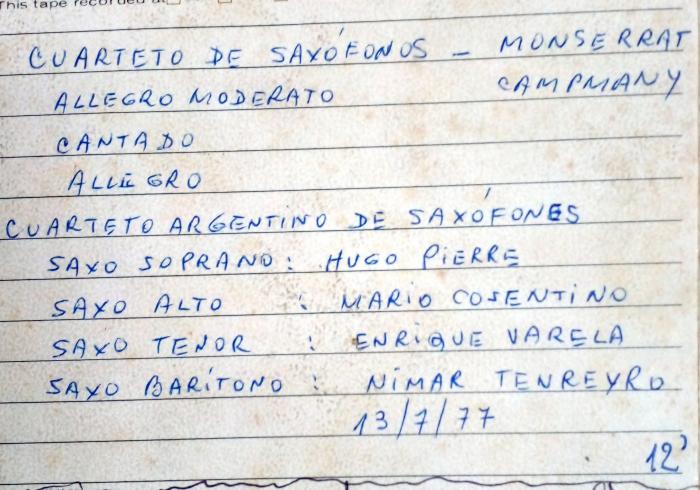 This tape recorded
CUARTETO DE SAXÓFONOS - MONSERRAT
CAMPMANY
ALLEGRO MODERATO
CANTADO
ALLEGRO
CUARTETO ARGENTINO DE SAXÓFONES
SAXO SOPRANO: HUGO PIERRE
SAXO ALTO : MARIO COSENTINO
SAXO TENOR : ENRIQUE VARELA
SAXO BARÍTONO : NIMAR TENREYRO
13/7/77
12'